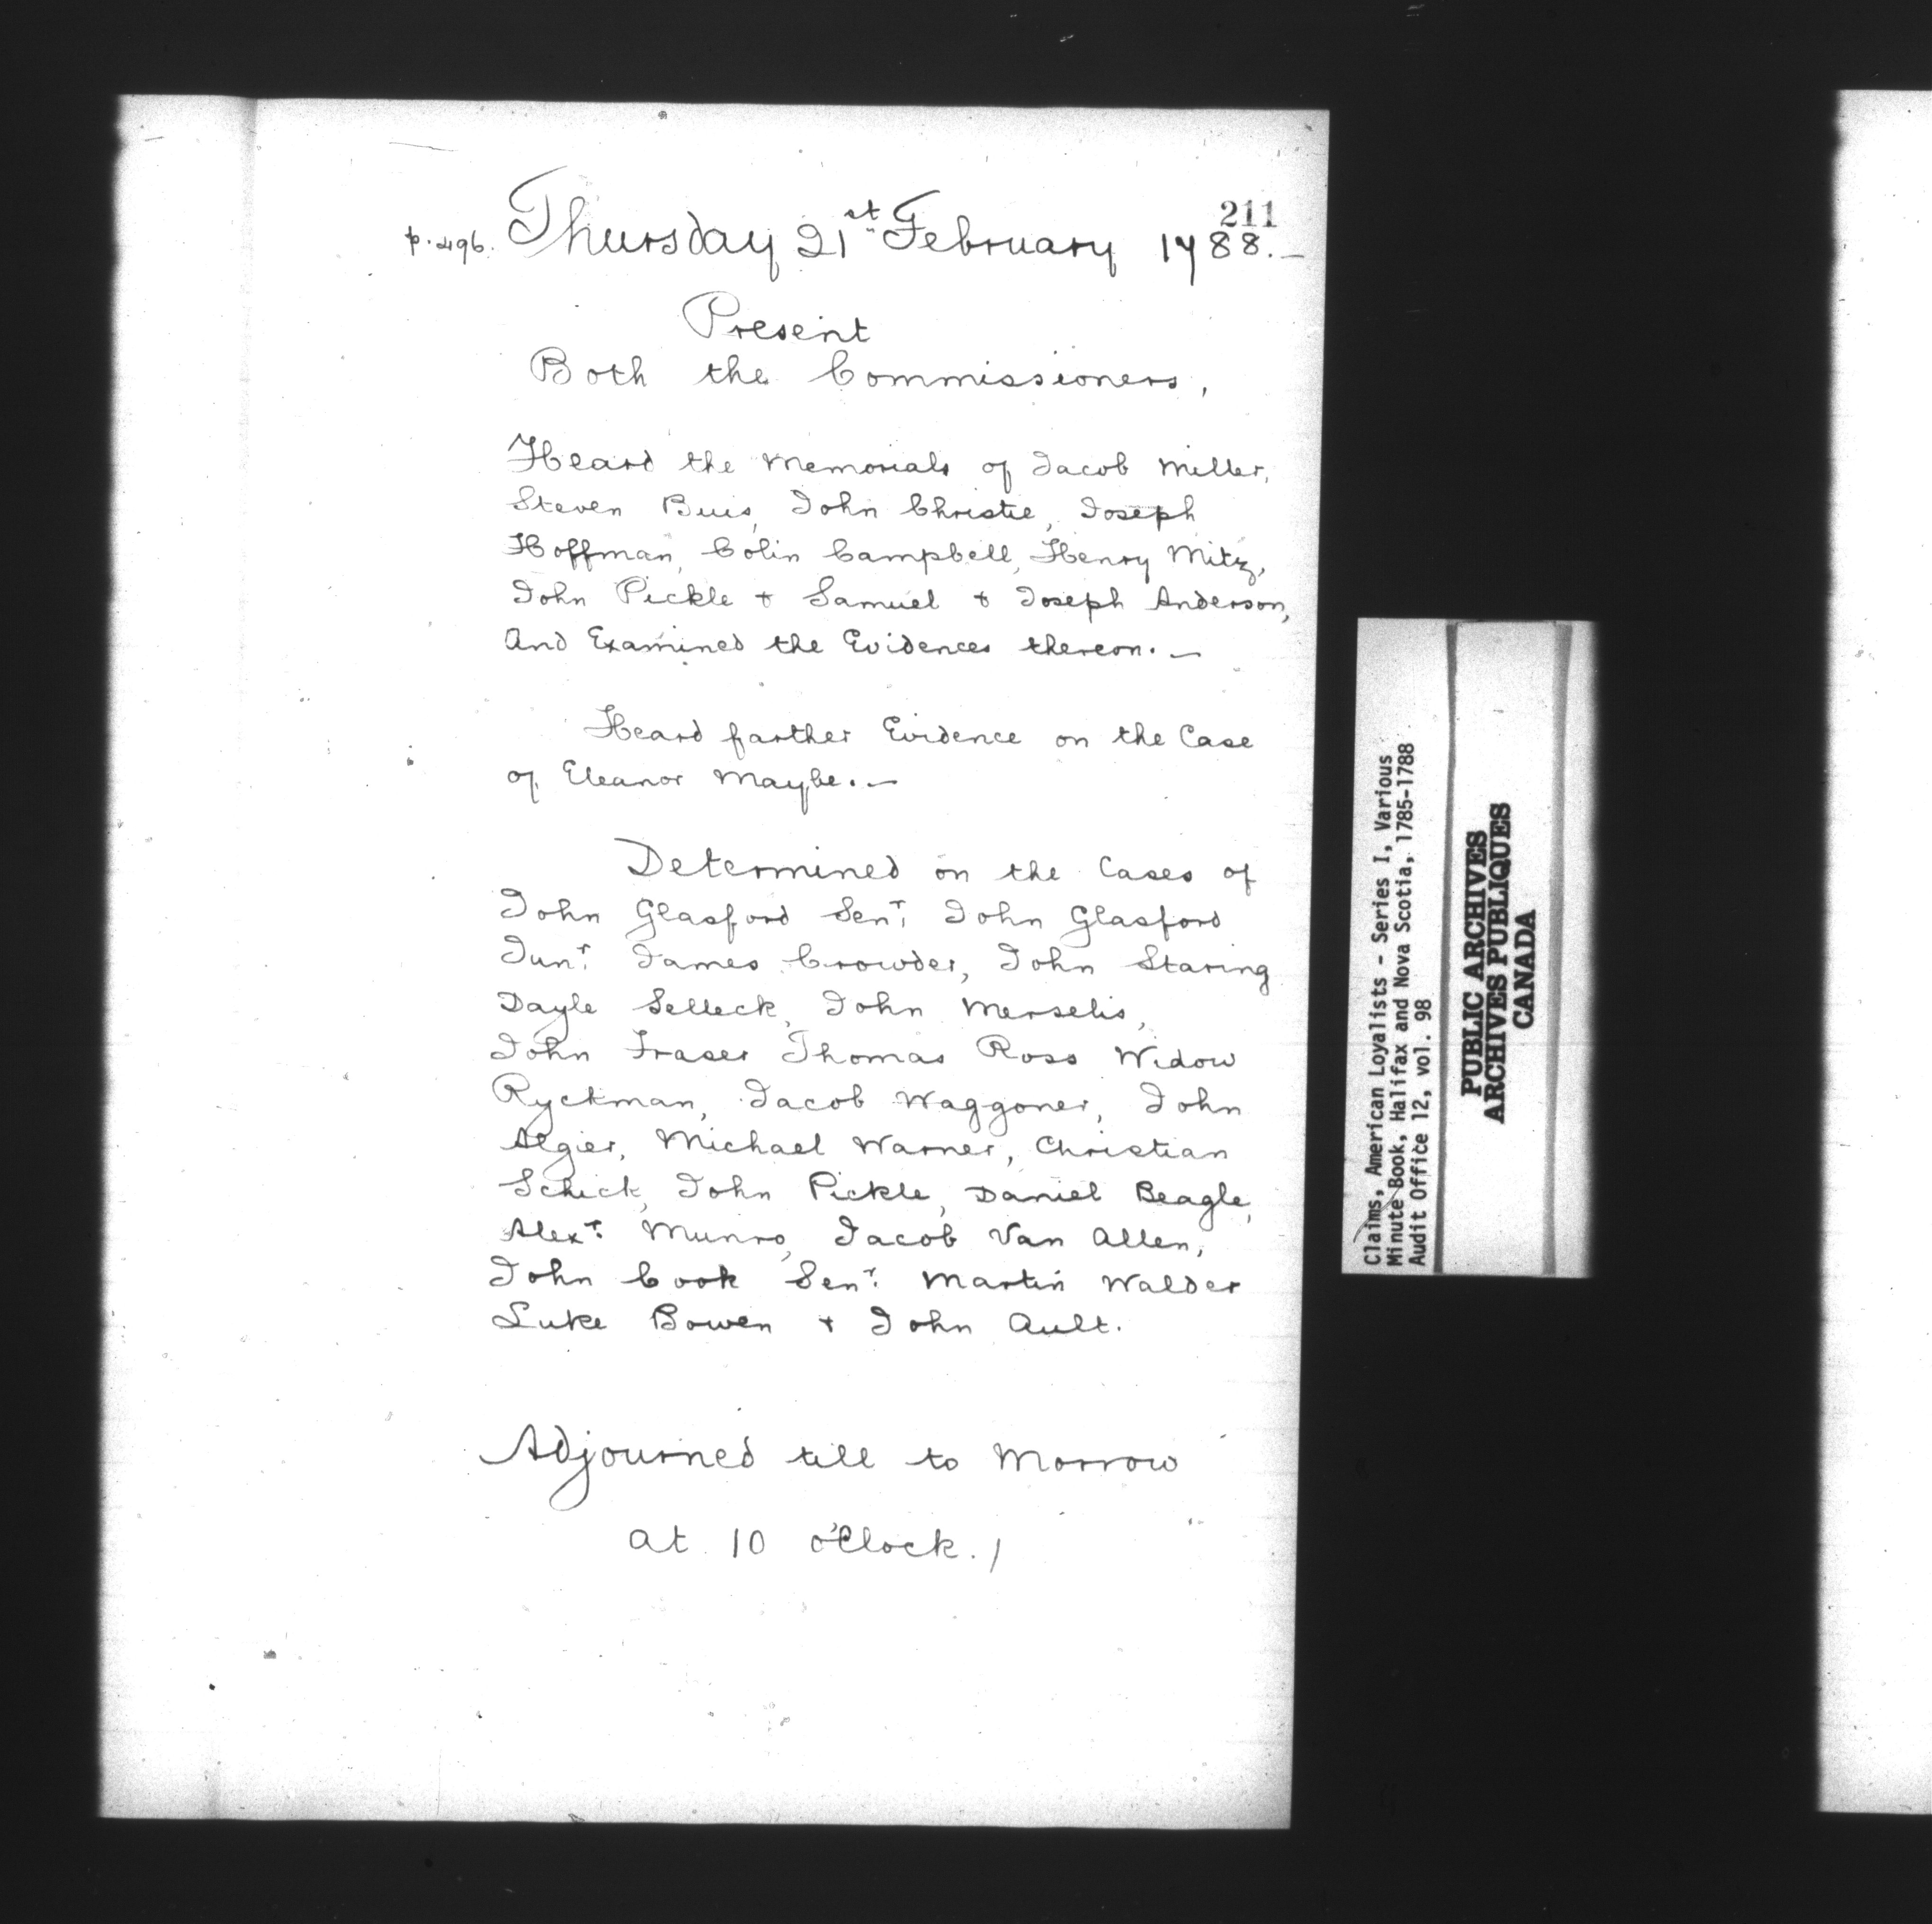 211
p. 496. Thursday 21st February 1788.—
Present
Both the Commissioners,
Heard the Memorials of Jacob Miller,
Steven Buis, John Christie, Joseph
Hoffman, Colin Campbell, Henry Mitz,
John Pickle + Samuel + Joseph Anderson,
And Examined the Evidences thereon.—
Heard farther Evidence on the Case
of Eleanor Maybe.—
Determined on the Cases of
John Glasford Senr. John Glasford
Junr. James Crowder, John Staring
Dayle Selleck, John Merselis,
John Fraser Thomas Ross Widow
Ryckman, Jacob Waggoner, John
Algier, Michael Warner, Christian
Schick, John Pickle, Daniel Beagle,
Alexr. Munro, Jacob Van Allen,
John Cook Senr. Martin Walder
Luke Bowen + John Ault.
Adjourned till to Morrow
at 10 o'Clock./
Claims, American Loyalists - Series I, Various
Minute Book, Halifax and Nova Scotia, 1785-1788
Audit Office 12, vol. 98
PUBLIC ARCHIVES
ARCHIVES PUBLIQUES
CANADA